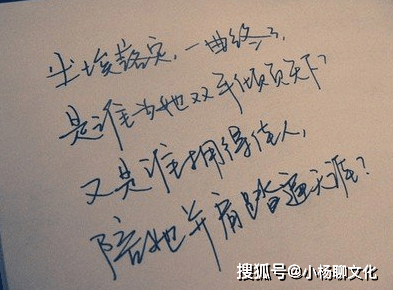 尘埃落定，一曲终了，
是谁为她双手倾覆天下？
又是谁拥得佳人，
陪她并肩踏遍天涯？
搜狐号@小杨聊文化